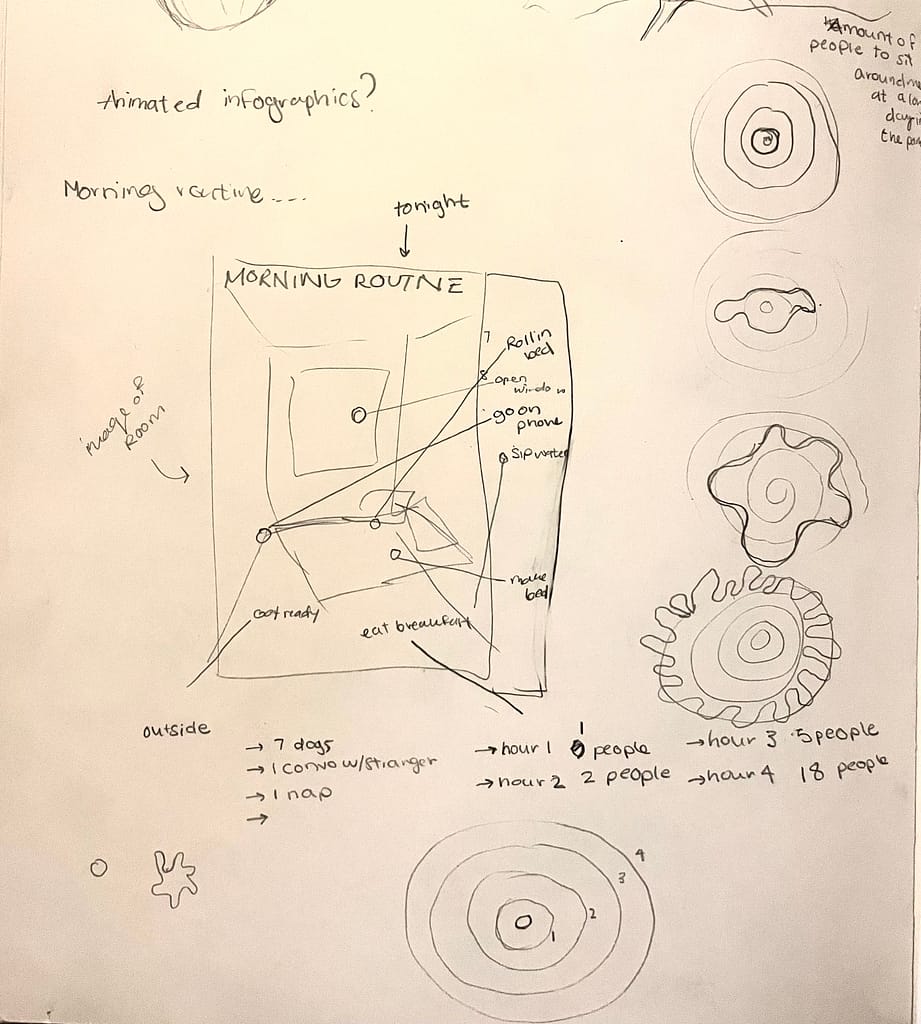 Amount of
people to sit
around me
at a
day
the
Animated infographics?
Morning routine....
tonight
MORNING ROUTINE
image of
room
7
Roll in
bed
8 open
window
go on
phone
sip water
make
bed
get ready
eat breakfast
outside
→ 7 dogs
→ 1 convo w/stranger
→ 1 nap
→
→ hour 1 1 people
→ hour 2 2 people
→ hour 3 5 people
→ hour 4 18 people
4
3
2
1